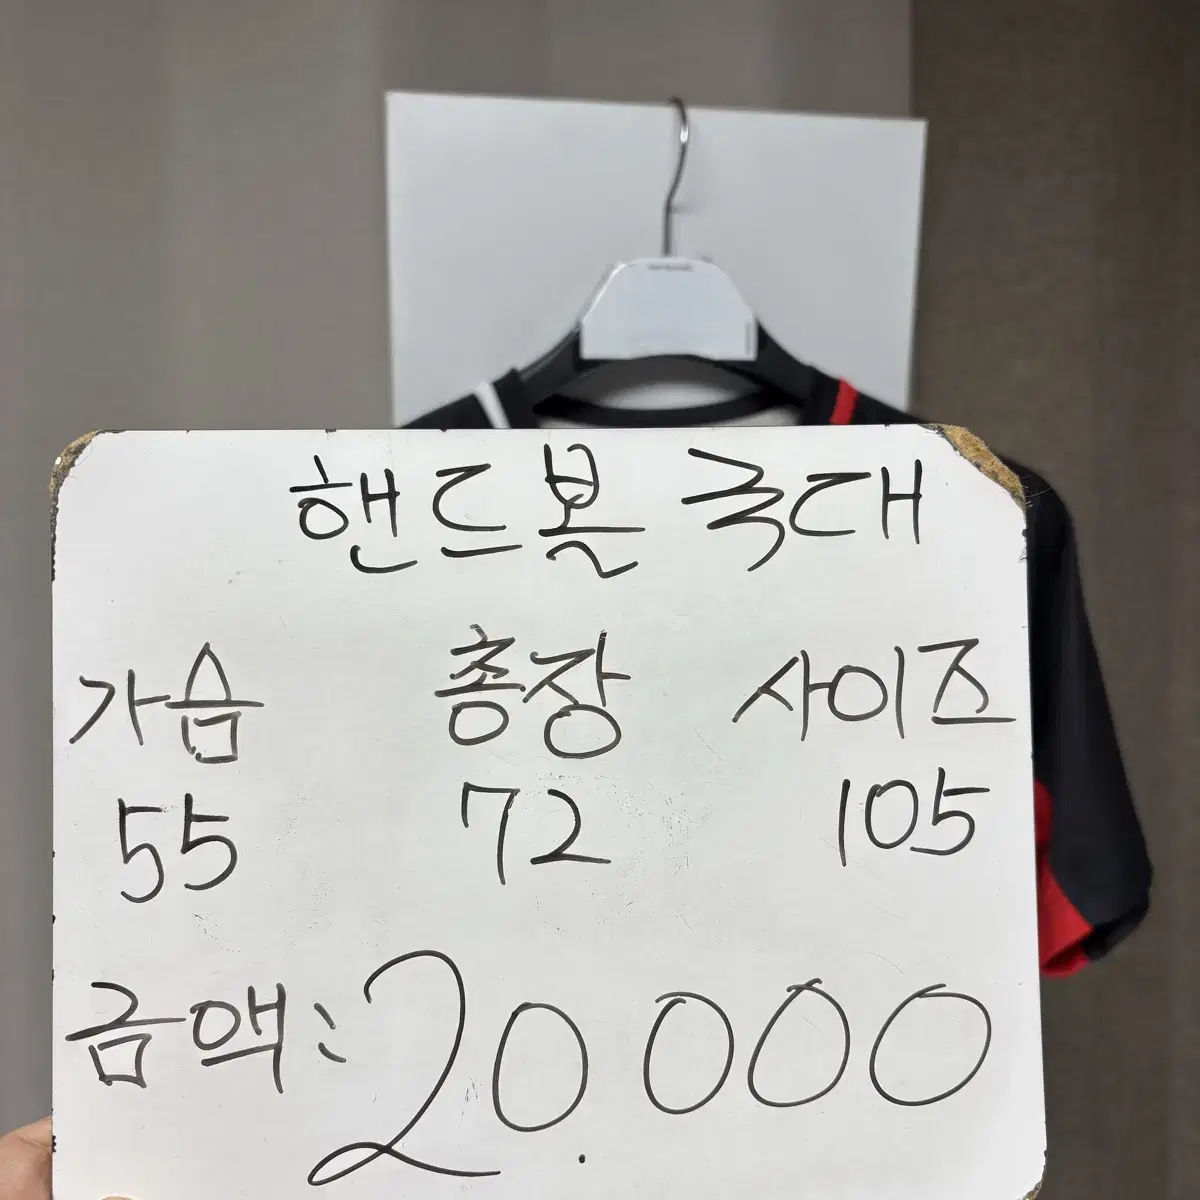 핸드볼 국대
가슴 총장 사이즈
55 72 105
금액: 20.000